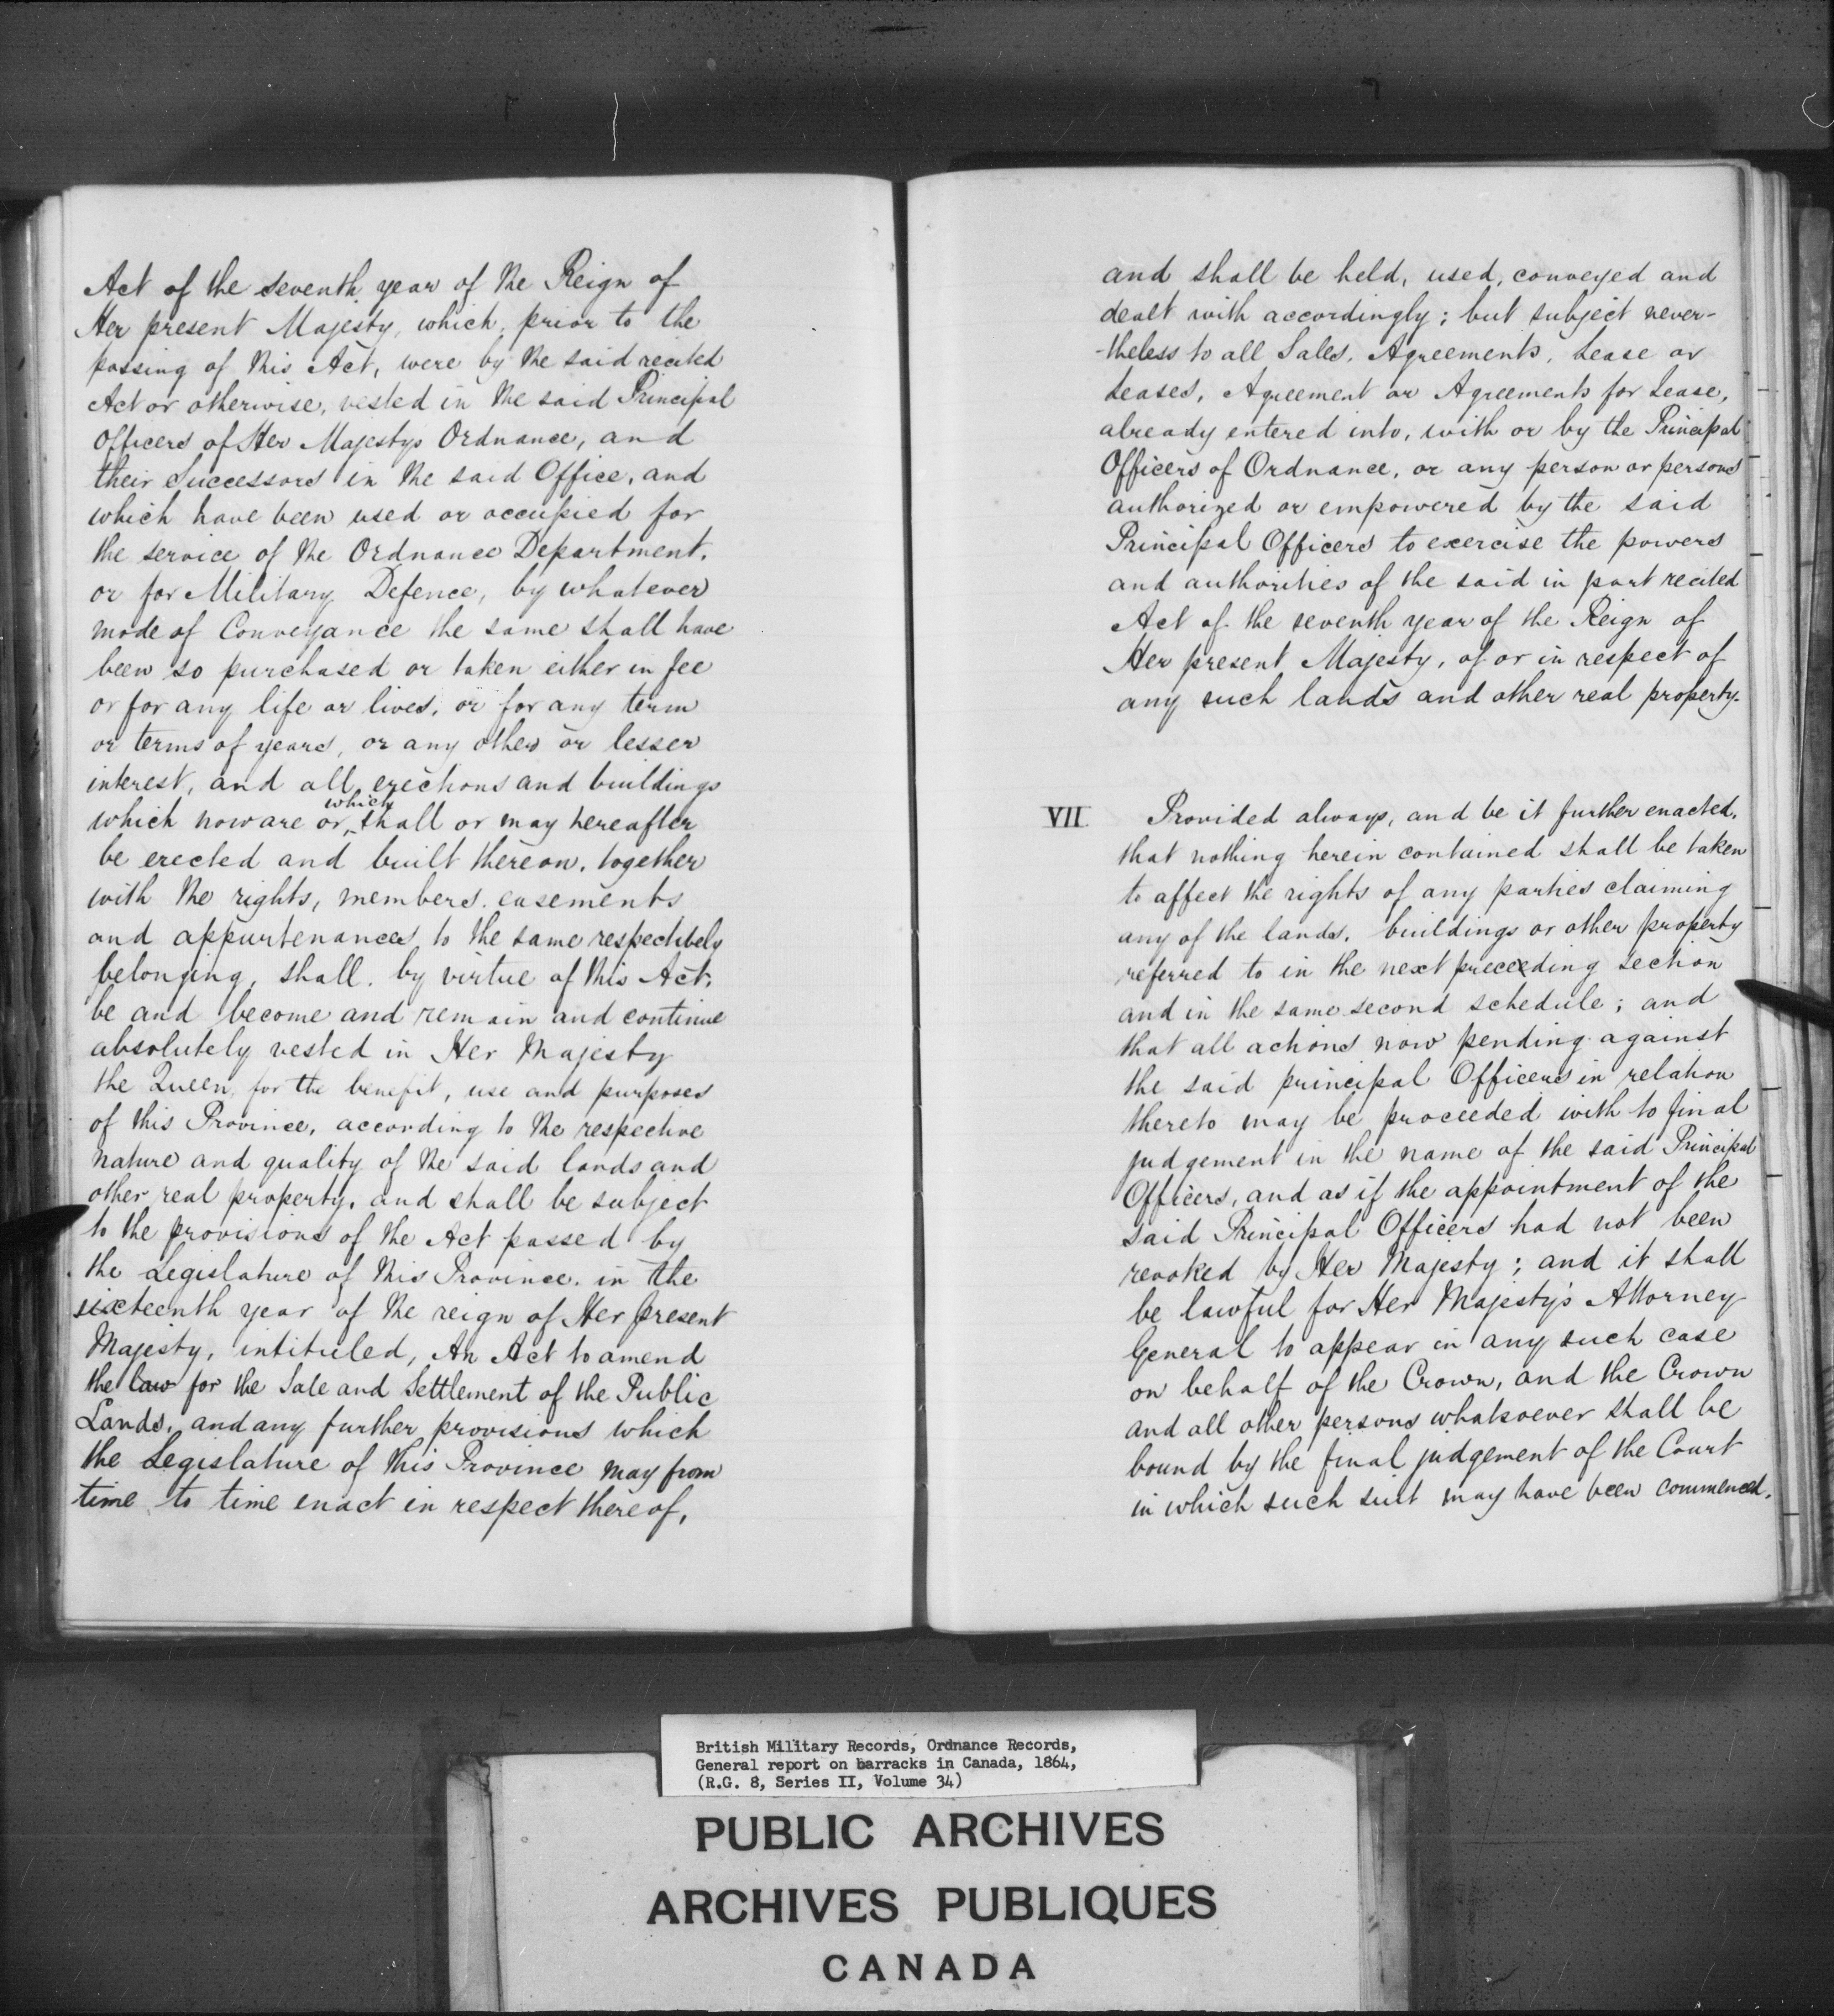 Act of the seventh year of the Reign of
Her present Majesty, which, prior to the
passing of this Act, were by the said recited
Act or otherwise, vested in the said Principal
Officers of Her Majestys Ordnance, and
their Successors in the said Office, and
which have been used or occupied for
the service of the Ordnance Department,
or for Military Defence, by whatever
mode of Conveyance the same shall have
been so purchased or taken either in fee
or for any life or lives, or for any term
or terms of years, or any other or lesser
interest, and all erections and buildings
which now are or which shall or may hereafter
be erected and built thereon, together
with the rights, members, easements
and appurtenances to the same respectively
belonging, shall, by virtue of this Act,
be and become and remain and continue
absolutely vested in Her Majesty
the Queen, for the benefit, use and purposes
of this Province, according to the respective
nature and quality of the said lands and
other real property, and shall be subject
to the provisions of the Act passed by
the Legislature of this Province, in the
sixteenth year of the reign of Her present
Majesty, intituled, An Act to amend
the law for the Sale and Settlement of the Public
Lands, and any further provisions which
the Legislature of this Province may from
time to time enact in respect thereof,
and shall be held, used, conveyed and
dealt with accordingly; but subject never-
-theless to all Sales, Agreements, Lease or
Leases, Agreement or Agreements for Lease,
already entered into, with or by the Principal
Officers of Ordnance, or any person or persons
authorized or empowered by the said
Principal Officers to exercise the powers
and authorities of the said in part recited
Act of the seventh year of the Reign of
Her present Majesty, of or in respect of
any such lands and other real property.
VII Provided always, and be it further enacted,
that nothing herein contained shall be taken
to affect the rights of any parties claiming
any of the lands, buildings or other property
referred to in the next preceeding section
and in the same second schedule; and
that all actions now pending against
the said principal Officers in relation
thereto may be proceeded with to final
judgement in the name of the said Principal
Officers, and as if the appointment of the
said Principal Officers had not been
revoked by Her Majesty; and it shall
be lawful for Her Majesty's Attorney
General to appear in any such case
on behalf of the Crown, and the Crown
and all other persons whatsoever shall be
bound by the final judgement of the Court
in which such suit may have been commenced.
British Military Records, Ordnance Records,
General report on barracks in Canada, 1864,
(R.G. 8, Series II, Volume 34)
PUBLIC ARCHIVES
ARCHIVES PUBLIQUES
CANADA